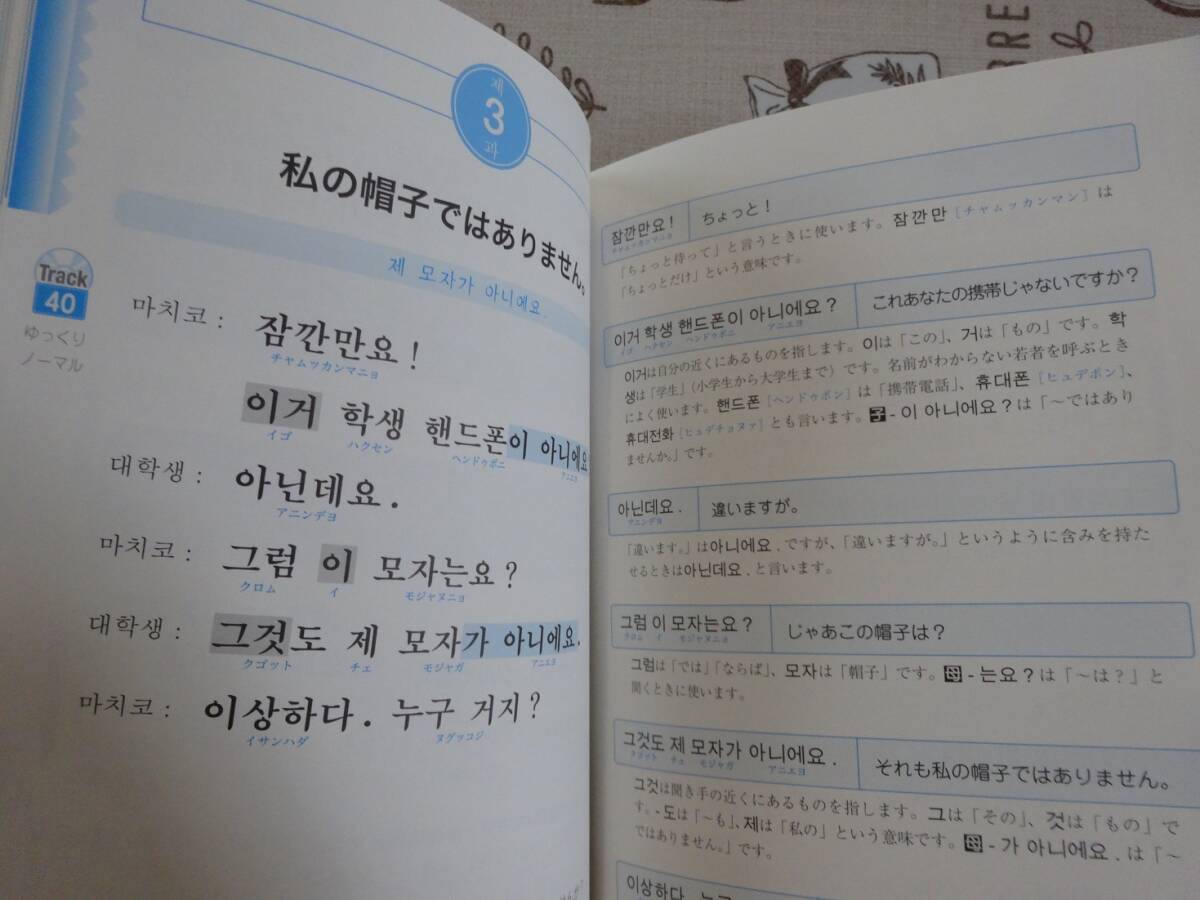 제
3
과
私の帽子ではありません。
제 모자가 아니에요.
Track
40
ゆっくり
ノーマル
마치코 : 잠깐만요!
チャムッカンマニョ
이거 학생 핸드폰이 아니에요
イゴ ハクセン ヘンドゥポニ アニエヨ
대학생 : 아닌데요.
アニンデヨ
마치코 : 그럼 이 모자는요?
クロム イ モジャヌニョ
대학생 : 그것도 제 모자가 아니에요.
クゴット チェ モジャガ アニエヨ
마치코 : 이상하다. 누구 거지?
イサンハダ ヌグッコジ
잠깐만요! ちょっと!
チャムッカンマニョ
「ちょっと待って」と言うときに使います。잠깐만［チャムッカンマン］は
「ちょっとだけ」という意味です。
이거 학생 핸드폰이 아니에요? これあなたの携帯じゃないですか?
イゴ ハクセン ヘンドゥポニ アニエヨ
이거は自分の近くにあるものを指します。이は「この」、거は「もの」です。학
생は「学生」(小学生から大学生まで)です。名前がわからない若者を呼ぶとき
によく使います。핸드폰［ヘンドゥポン］は「携帯電話」、휴대폰［ヒュデポン］、
휴대전화［ヒュデチョヌァ］とも言います。子-이 아니에요?は「〜ではあり
ませんか。」です。
아닌데요. 違いますが。
アニンデヨ
「違います。」は아니에요.ですが、「違いますが。」というように含みを持た
せるときは아닌데요.と言います。
그럼 이 모자는요? じゃあこの帽子は?
クロム イ モジャヌニョ
그럼は「では」「ならば」、모자は「帽子」です。母-는요?は「〜は?」と
聞くときに使います。
그것도 제 모자가 아니에요. それも私の帽子ではありません。
クゴット チェ モジャガ アニエヨ
그것は聞き手の近くにあるものを指します。그は「その」、것は「もの」で
す。-도は「〜も」、제は「私の」という意味です。母-가 아니에요.は「〜
ではありません。」です。
이상하다
BRE